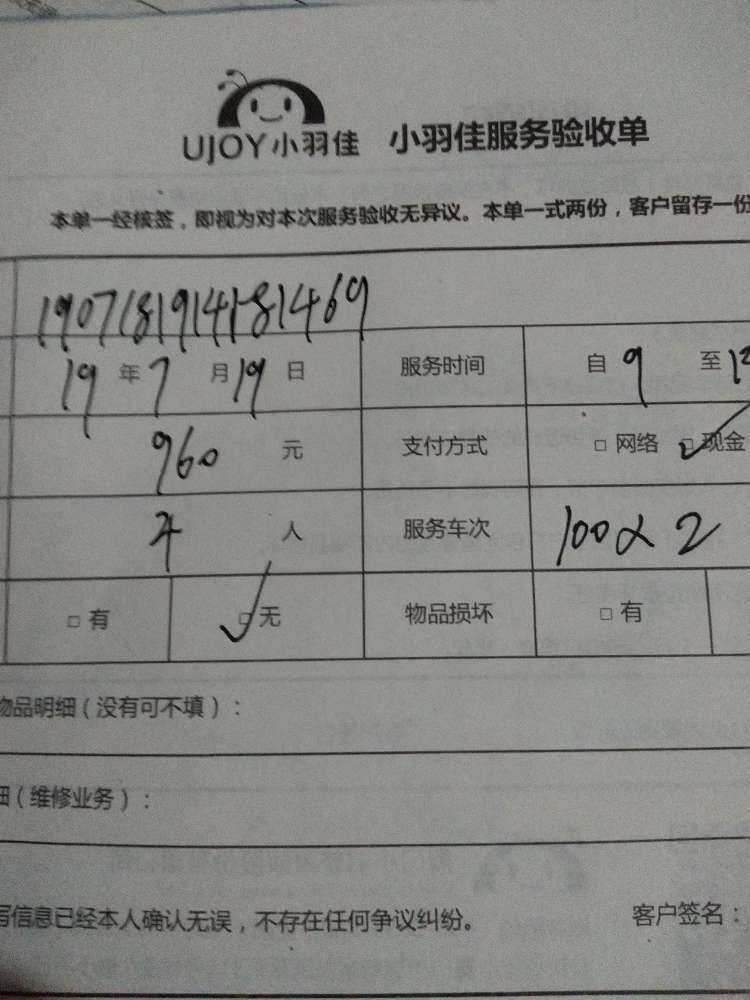 UJOY小羽佳 小羽佳服务验收单
本单一经核签，即视为对本次服务验收无异议。本单一式两份，客户留存一份
1907181914181469
19 年 7 月 19 日 服务时间 自 9 至
960 元 支付方式 □ 网络 □ 现金
4 人 服务车次 100×2
□ 有 □ 无 物品损坏 □ 有
物品明细（没有可不填）：
细（维修业务）：
写信息已经本人确认无误，不存在任何争议纠纷。 客户签名：